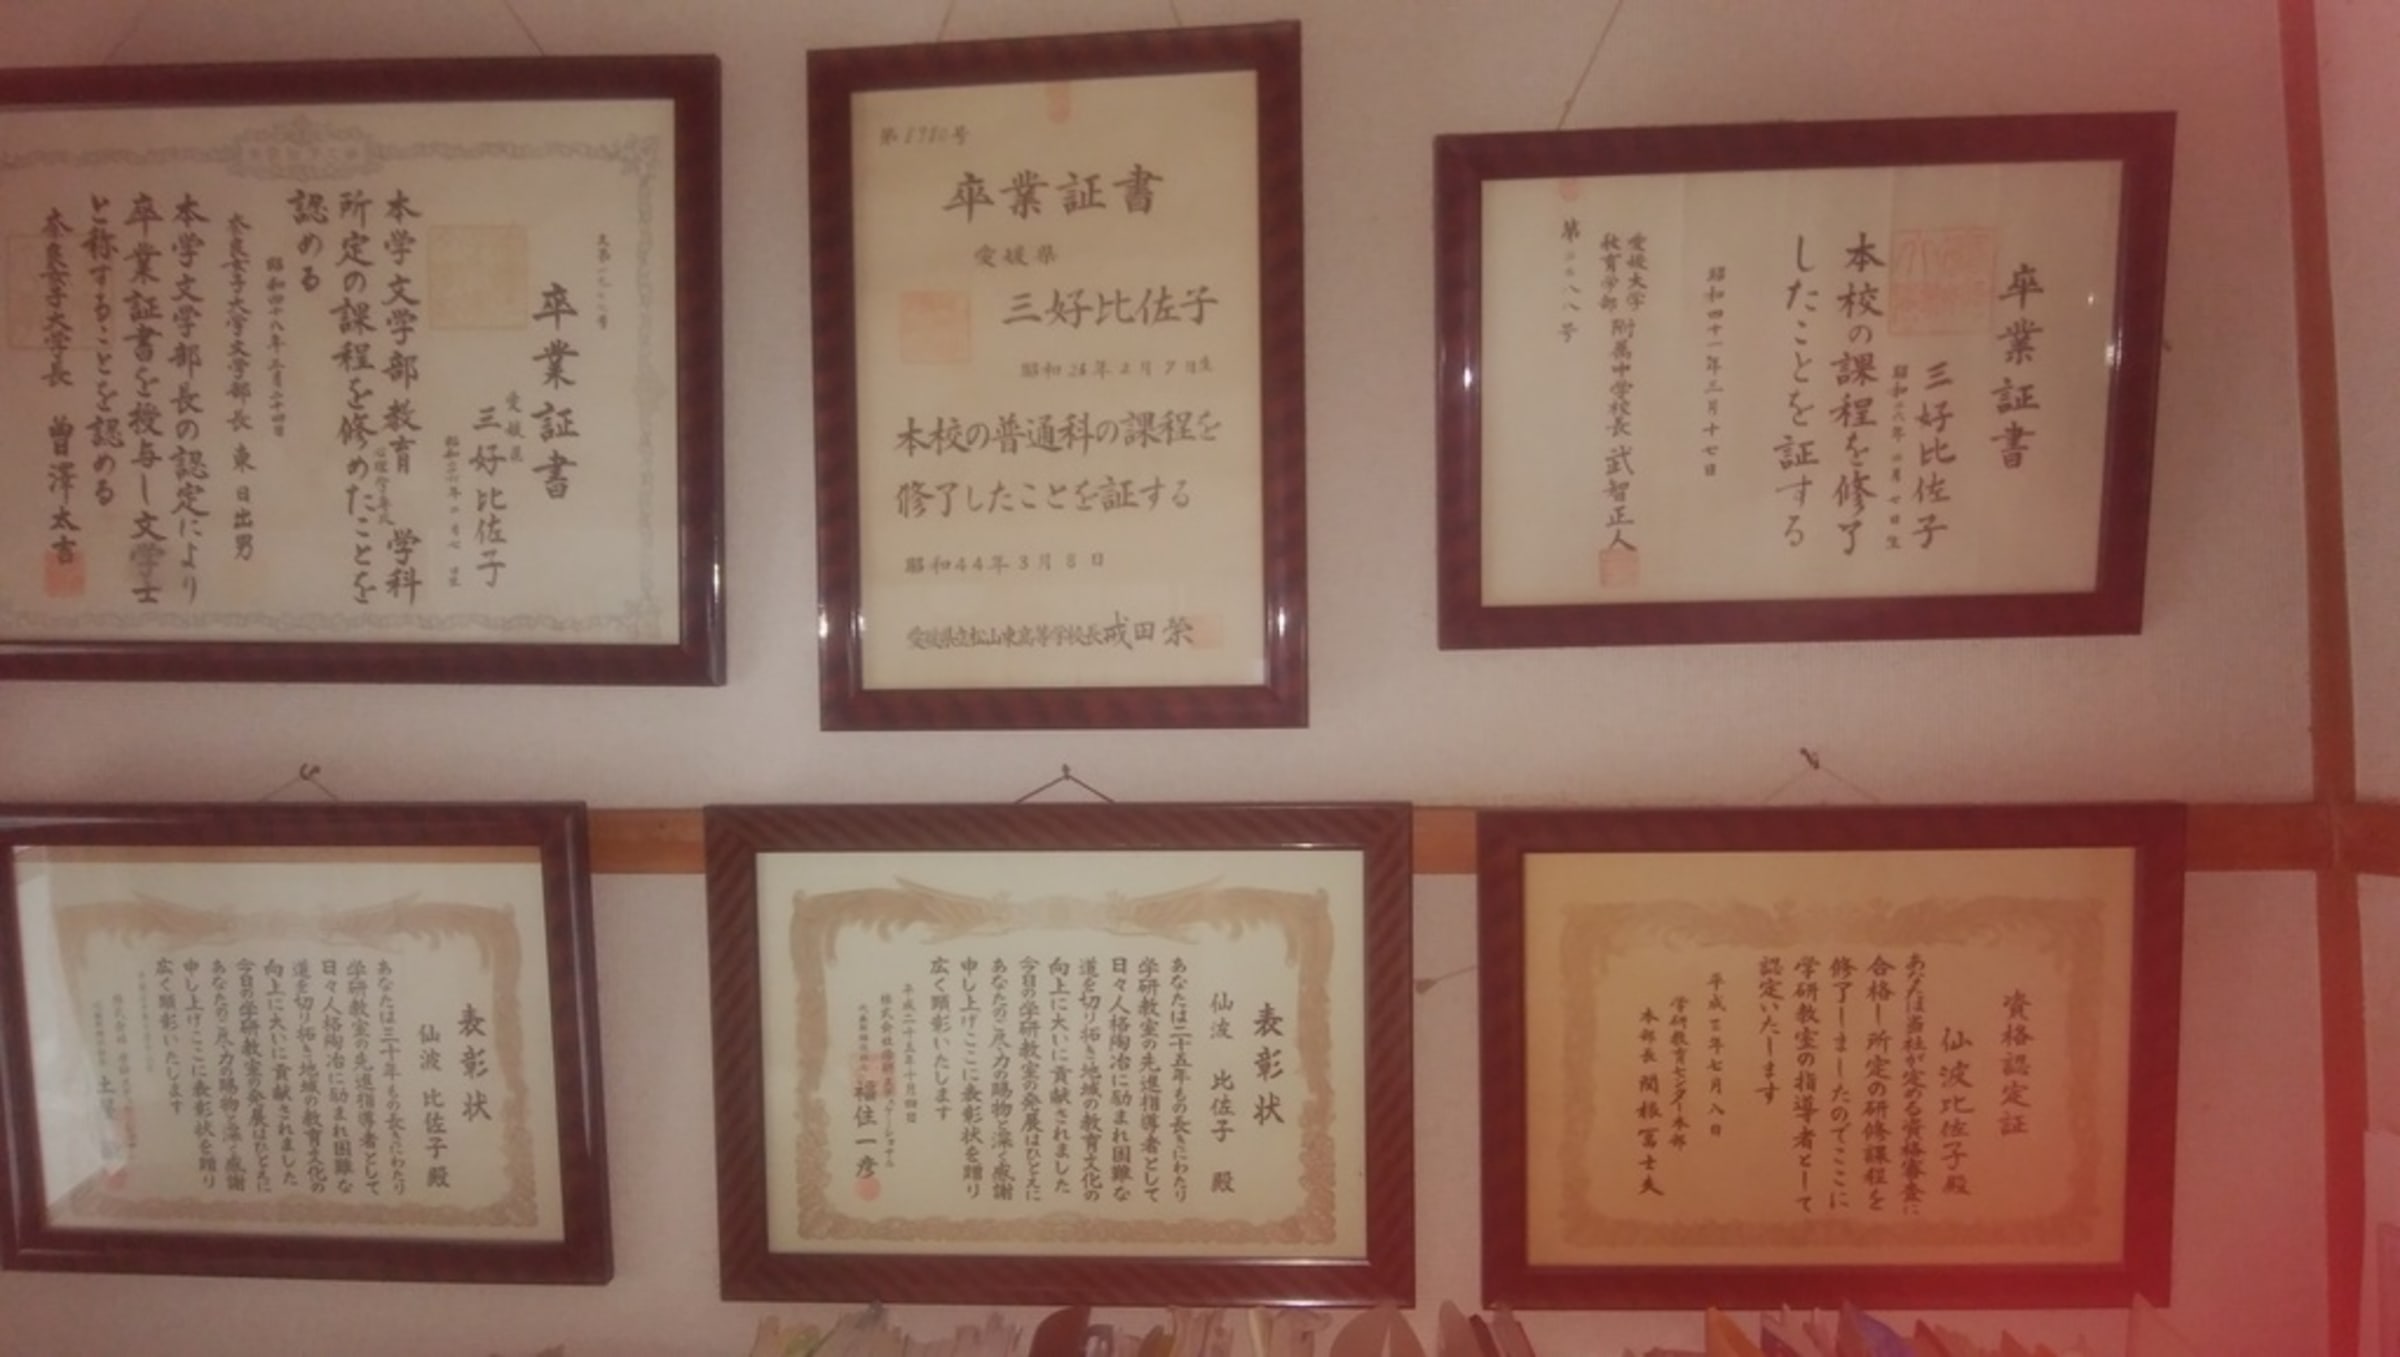 卒業証書
愛媛県
三好比佐子
本学文学部教育学科
所定の課程を修めたことを
認める
昭和四十八年三月二十四日
奈良女子大学文学部長 東日出男
本学文学部長の認定により
卒業証書を授与し文学士
と称することを認める
奈良女子大学長 曽澤太吉
第8980号
卒業証書
愛媛県
三好比佐子
昭和26年2月7日生
本校の普通科の課程を
修了したことを証する
昭和44年3月8日
愛媛県立松山東高等学校長 成田栄
卒業証書
三好比佐子
本校の課程を修了
したことを証する
昭和四十一年三月十七日
愛媛大学
教育学部
附属中学校長 武智正人
表彰状
仙波 比佐子 殿
あなたは三十年もの長きにわたり
学研教室の先進指導者として
日々人格陶冶に励まれ困難な
道を切り拓き地域の教育文化の
向上に大いに貢献されました
今日の学研教室の発展はひとえに
あなたのご尽力の賜物と深く感謝
申し上げここに表彰状を贈り
広く顕彰いたします
表彰状
仙波 比佐子 殿
あなたは二十五年もの長きにわたり
学研教室の先進指導者として
日々人格陶冶に励まれ困難な
道を切り拓き地域の教育文化の
向上に大いに貢献されました
今日の学研教室の発展はひとえに
あなたのご尽力の賜物と深く感謝
申し上げここに表彰状を贈り
広く顕彰いたします
平成二十五年十月四日
福住一彦
資格認定証
仙波比佐子殿
あなたは当社が定める資格審査に
合格し所定の研修課程を
修了しましたのでここに
学研教室の指導者として
認定いたします
平成元年七月八日
学研教育センター本部
本部長 関根富士夫